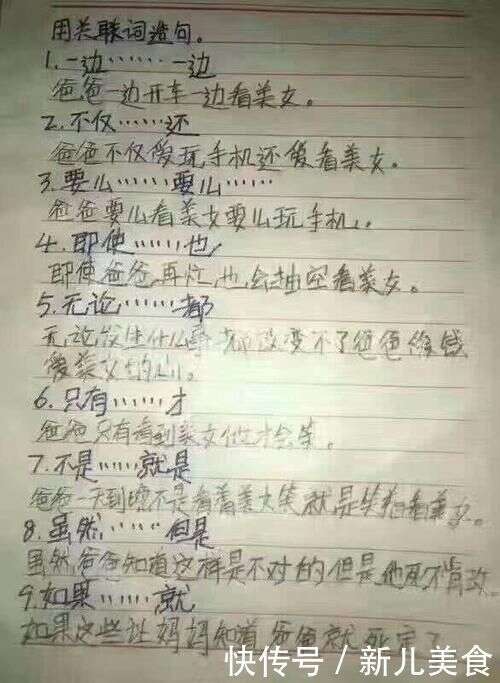 用关联词造句。
1.一边……一边
爸爸一边开车一边看美女。
2.不仅……还
爸爸不仅爱玩手机还爱看美女。
3.要么……要么……
爸爸要么看美女要么玩手机。
4.即使……也
即使爸爸再忙,也会抽空看美女。
5.无论……都
无论发生什么事都改变不了爸爸
爱美女的心。
6.只有……才
爸爸只有看到美女他才会笑。
7.不是……就是
爸爸一天到晚不是看着美女笑就是笑着看美女。
8.虽然……但是
虽然爸爸知道这样是不对的但是他死不肯改。
9.如果……就
如果这些让妈妈知道爸爸就死定了
快传号/新儿美食